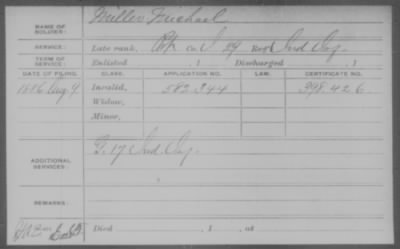 Miller Michael
NAME OF SOLDIER:
SERVICE: Late rank, Co. I 29 Reg't Ind. Inf.
TERM OF SERVICE: Enlisted , 1 Discharged , 1
DATE OF FILING. CLASS. APPLICATION NO. LAW. CERTIFICATE NO.
1886 Aug 9 Invalid, 582.344 398.426
Widow,
Minor,
ADDITIONAL SERVICES: 17 Ind. Inf.
REMARKS:
Died , 1 , at